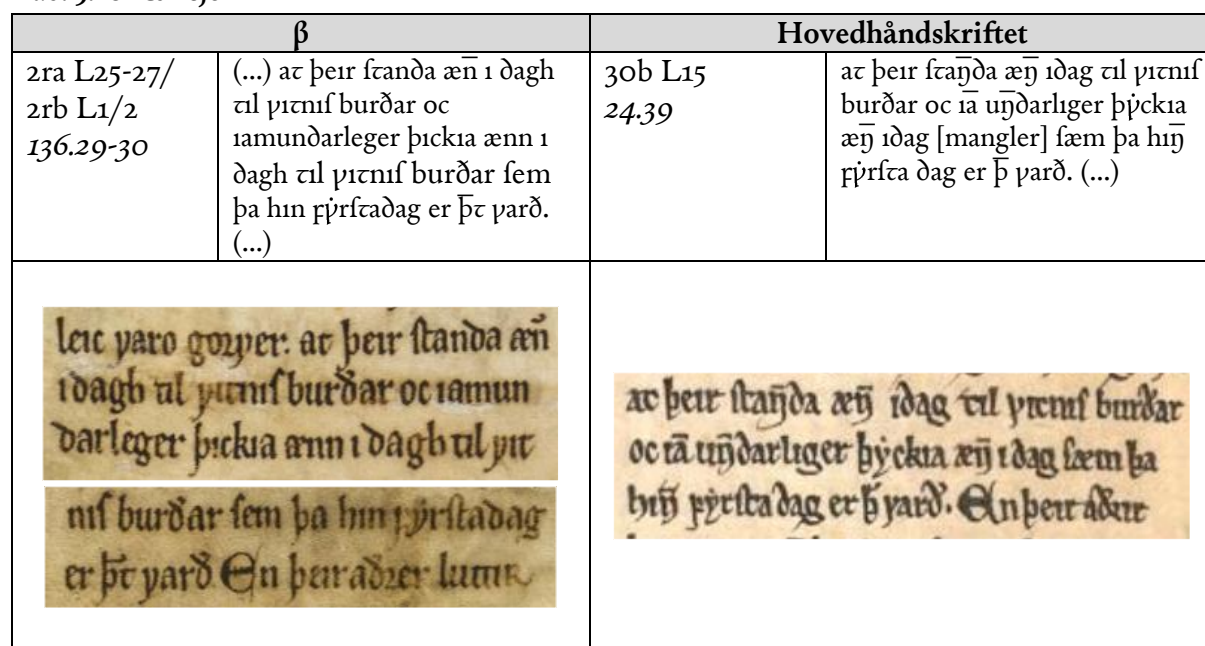 β
Hovedhåndskriftet
2ra L25-27/
2rb L1/2
136.29-30
(...) aꞇ þeır ſꞇanda æn̅ ı ꝺagh
ꞇıl ꝩıꞇnıſ burðar oc
ıamunꝺarleger þıckıa ænn ı
ꝺagh ꞇıl ꝩıꞇnıſ burðar ſem
þa hın ꝼẏrſꞇaꝺag er þ̅ꞇ ꝩarð.
(...)
30b L15
24.39
aꞇ þeır ſꞇaŋ̅ꝺa æŋ̅ ıꝺag ꞇıl ꝩıꞇnıſ
burðar oc ıa̅ uŋ̅ꝺarlıger þẏckıa
æŋ̅ ıꝺag [mangler] ſæm þa hıŋ̅
ꝼẏrſꞇa ꝺag er þ̅ ꝩarð. (...)
leıc ꝩaro goꝛꝩer. aꞇ þeır ſꞇanꝺa æn̅
ıꝺagh ꞇıl ꝩıꞇnıſ burðar oc ıamun
ꝺarleger þıckıa ænn ı ꝺagh ꞇıl ꝩıꞇ
nıſ burðar ſem þa hın ꝼẏrſꞇaꝺag
er þ̅ꞇ ꝩarð En þeır aðꝛer
aꞇ þeır ſꞇaŋ̅ꝺa æŋ̅ ıꝺag ꞇıl ꝩıꞇnıſ burðar
oc ıa̅ uŋ̅ꝺarlıger þẏckıa æŋ̅ ıꝺag ſæm þa
hıŋ̅ ꝼẏrſꞇa ꝺag er þ̅ ꝩarð. En þeır